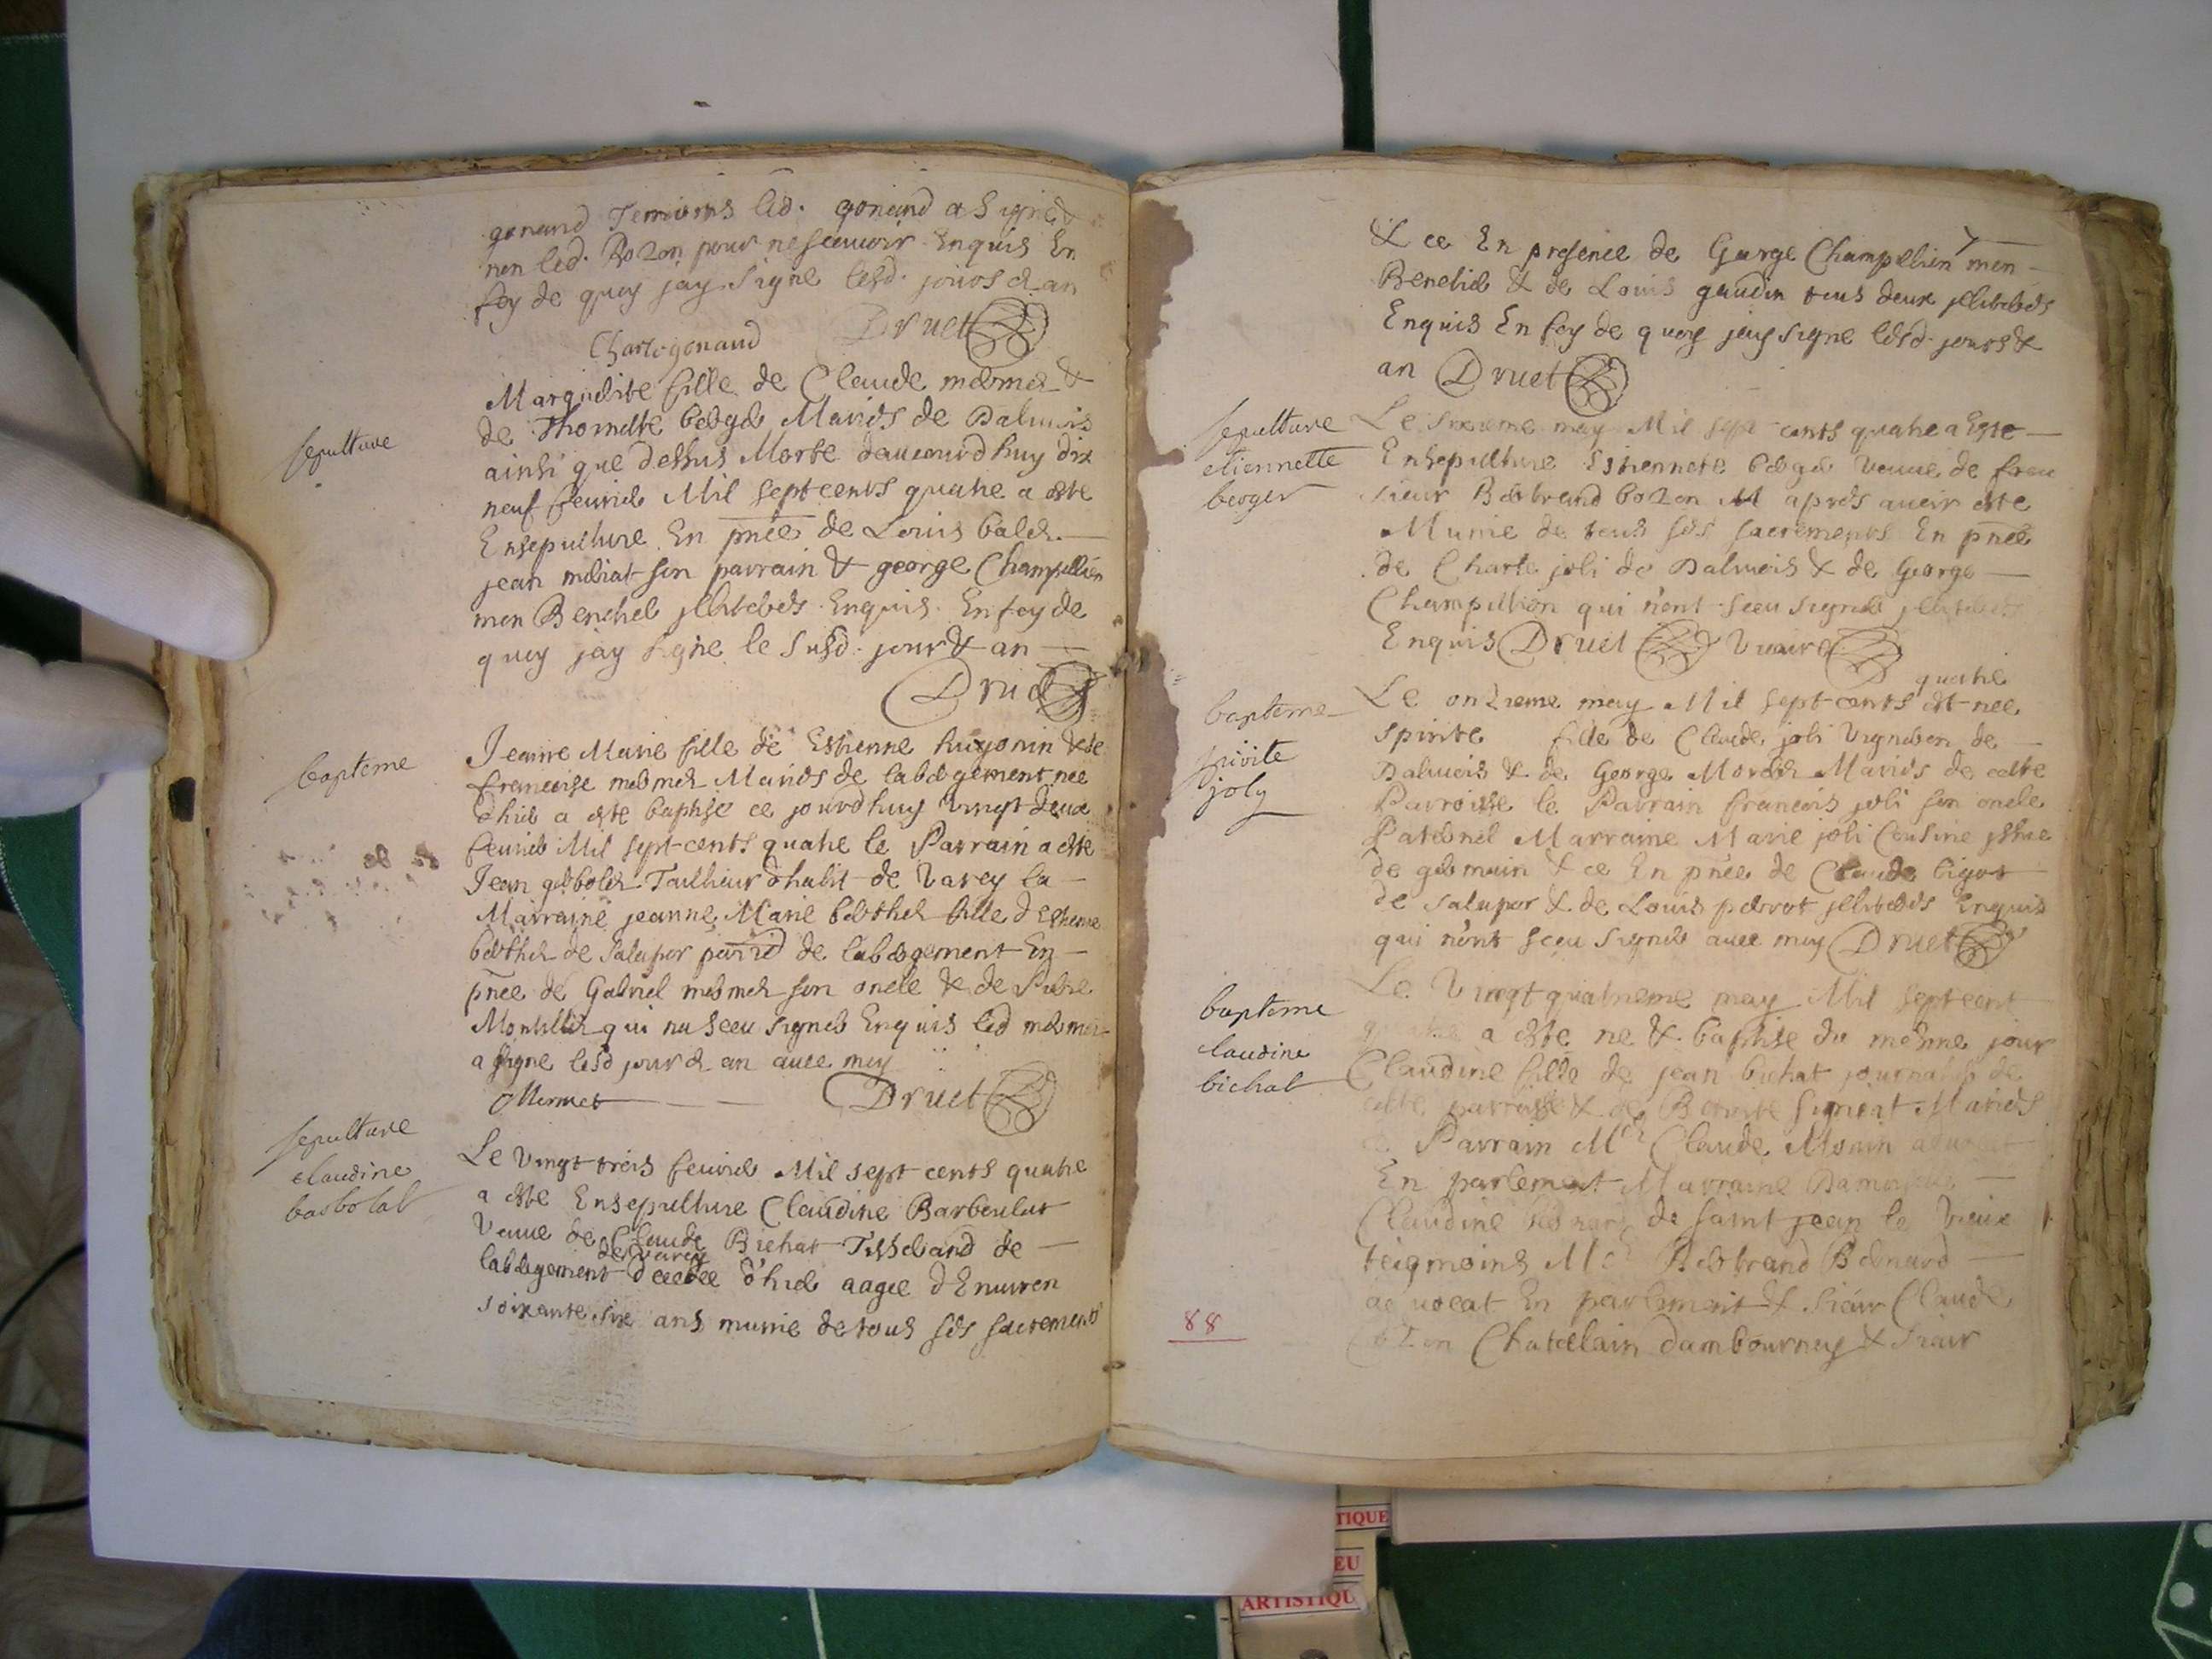 gonand Temoins led. gonand a Signe &
non led. Bozon pour ne scauoir Enquis En
foy de quoy jay signe lesd. jours & an
Druet
Charle gonaud
sepulture
Marguerite fille de Claude mermet &
de Thomette berger Mariés de Daluois
ainsi que dessus Morte daujourdhuy dix
neuf feurier Mil sept cents quatre a este
Ensepulture En pnce de Louis balet
jean meriat son parrain & george Champillion
mon Benehier jlliterés Enquis En foy de
quoy jay signe le susd. jour & an
Druet
bapteme
Jeanne Marie fille de Estienne hugonin & de
francoise mermet Mariés de labergement nee
d'hier a este baptise ce jourdhuy Vingt deux
feurier Mil sept cents quatre le Parrain a este
Jean gerbolet Tailheur dhabit de Varey la
Marraine jeanne Marie berthet fille d Estienne
berthet de Salapor parrie de labergement En
pnce de Gabriel mermet son oncle & de
qui na sceu signer Enquis led mermet
a signe lesd jour & an auec moy
Mermet Druet
sepulture
claudine
barbolat
Le Vingt trois feurier Mil sept cents quatre
a este Ensepulture Claudine Barboulat
Veuue de Claude Bichat Tisserand de
de Varey
labergement decedee d'hier aagee d Enuiron
soixante six ans munie de tous ses sacrements
& ce En presence de George Champillion mon
Benehier & de Louis gaudin tous deux jlliterés
Enquis En foy de quoy jay signe lesd. jours &
an Druet
sepulture
etiennette
berger
Le sixieme may Mil sept cents quatre a Este
Ensepulture Estiennete berger Veuue de feeu
sieur Bertrand bozon M apres auoir este
Munie de tous ses sacrements En pnce
de Charle joli de Daluois & de George
Champillion qui n'ont sceu signer jlliterés
Enquis Druet Vicaire
quatre
bapteme
spirite
joly
Le onzieme may Mil sept cents est nee
spirite fille de Claude joli Vigneron de
Daluois & de George Morelet Mariés de cette
Parroisse le Parrain francois joli son oncle
Paternel Marraine Marie joli Cousine jssue
de germain & ce En pnce de Claude bigot
de Salapor & de Louis perrot jlliterés Enquis
qui n'ont sceu signer auec moy Druet
bapteme
claudine
bichat
Le Vingt quatrieme may Mil sept cent
quatre a este ne & baptise du mesme jour
Claudine fille de jean bichat journalier de
cette parroisse & de Benoite Mariés
Parrain Me Claude Monin aduocat
En parlement Marraine Damoyselle
Claudine Bernard de Saint jean le Vieux
teigmoins Me Bertrand Bernard
aduocat En parlement & Sieur Claude
Chatelain dambournay & Sieur
88
TIQUE
EU
ARTISTIQU